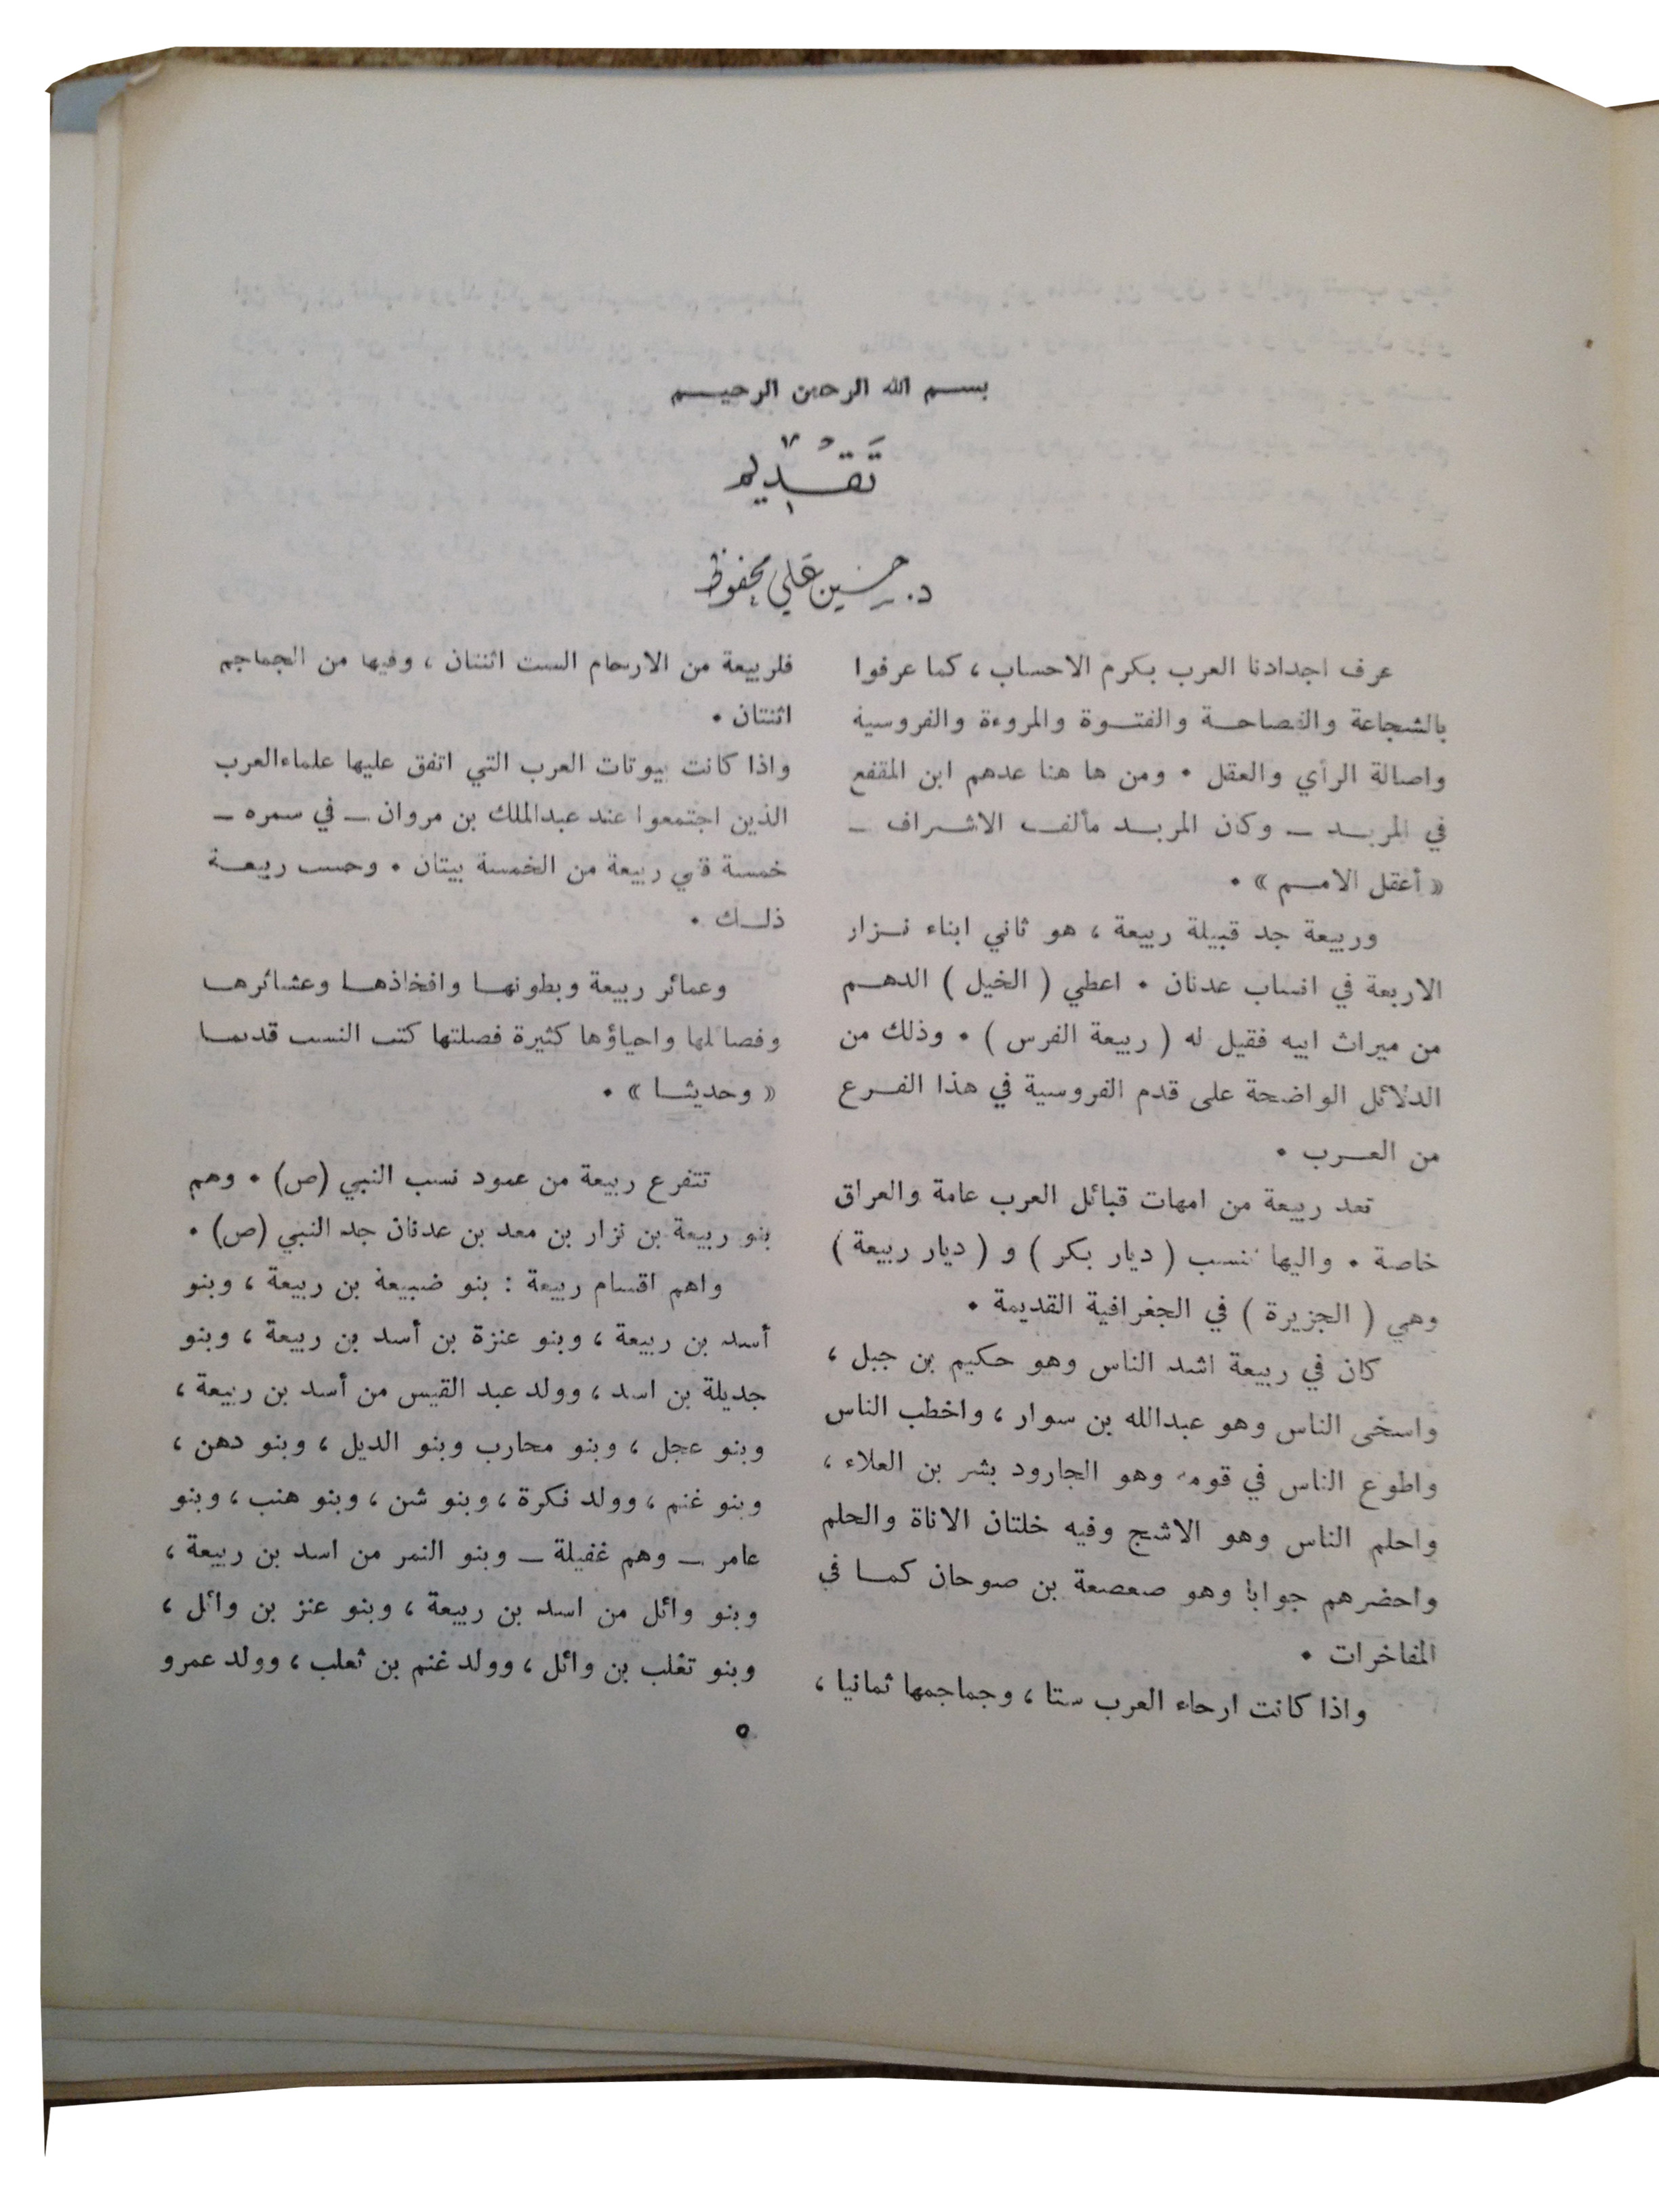 بسم الله الرحمن الرحيم
تَقدُيم
د. حسين علي محفوظ
عرف اجدادنا العرب بكرم الاحساب ، كما عرفوا
بالشجاعة والفصاحة والفتوة والمروءة والفروسية
واصالة الرأي والعقل . ومن ها هنا عدهم ابن المقفع
في المربد – وكان المربد مألف الاشراف –
« أعقل الامم » .
وربيعة جد قبيلة ربيعة ، هو ثاني ابناء نزار
الاربعة في انساب عدنان . اعطي ( الخيل ) الدهم
من ميراث ابيه فقيل له ( ربيعة الفرس ) . وذلك من
الدلائل الواضحة على قدم الفروسية في هذا الفرع
من العرب .
تعد ربيعة من امهات قبائل العرب عامة والعراق
خاصة . واليها تنسب ( ديار بكر ) و ( ديار ربيعة )
وهي ( الجزيرة ) في الجغرافية القديمة .
كان في ربيعة اشد الناس وهو حكيم بن جبل ،
واسخى الناس وهو عبدالله بن سوار ، واخطب الناس
واطوع الناس في قومه وهو الجارود بشر بن العلاء ،
واحلم الناس وهو الاشج وفيه خلتان الاناة والحلم
واحضرهم جوابا وهو صعصعة بن صوحان كما في
المفاخرات .
واذا كانت ارحاء العرب ستا ، وجماجمها ثمانيا ،
فلربيعة من الارحام الست اثنتان ، وفيها من الجماجم
اثنتان .
واذا كانت بيوتات العرب التي اتفق عليها علماءالعرب
الذين اجتمعوا عند عبدالملك بن مروان – في سمره –
خمسة ففي ربيعة من الخمسة بيتان . وحسب ربيعة
ذلك .
وعمائر ربيعة وبطونها وافخاذها وعشائرها
وفصائلها واحياؤها كثيرة فصلتها كتب النسب قديما
« وحديثا » .
تتفرع ربيعة من عمود نسب النبي (ص) . وهم
بنو ربيعة بن نزار بن معد بن عدنان جد النبي (ص) .
واهم اقسام ربيعة : بنو ضبيعة بن ربيعة ، وبنو
أسد بن ربيعة ، وبنو عنزة بن أسد بن ربيعة ، وبنو
جديلة بن اسد ، وولد عبد القيس من أسد بن ربيعة ،
وبنو عجل ، وبنو محارب وبنو الديل ، وبنو دهن ،
وبنو غنم ، وولد نكرة ، وبنو شن ، وبنو هنب ، وبنو
عامر – وهم غفيلة – وبنو النمر من اسد بن ربيعة ،
وبنو وائل من اسد بن ربيعة ، وبنو عنز بن وائل ،
وبنو تغلب بن وائل ، وولد غنم بن ثعلب ، وولد عمرو
٥